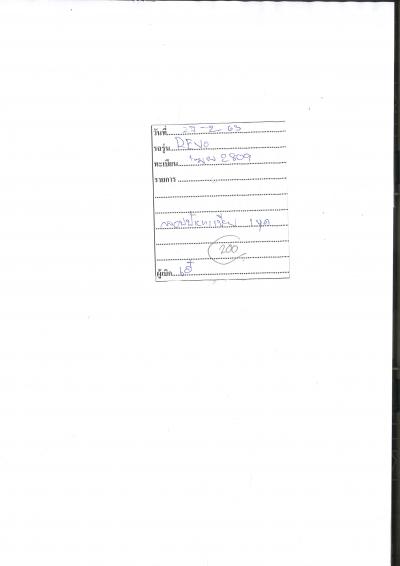 วันที่ 27-2-63
รถรุ่น REVO
ทะเบียน 2809
รายการ
1 ชุด
200
ผู้เบิก